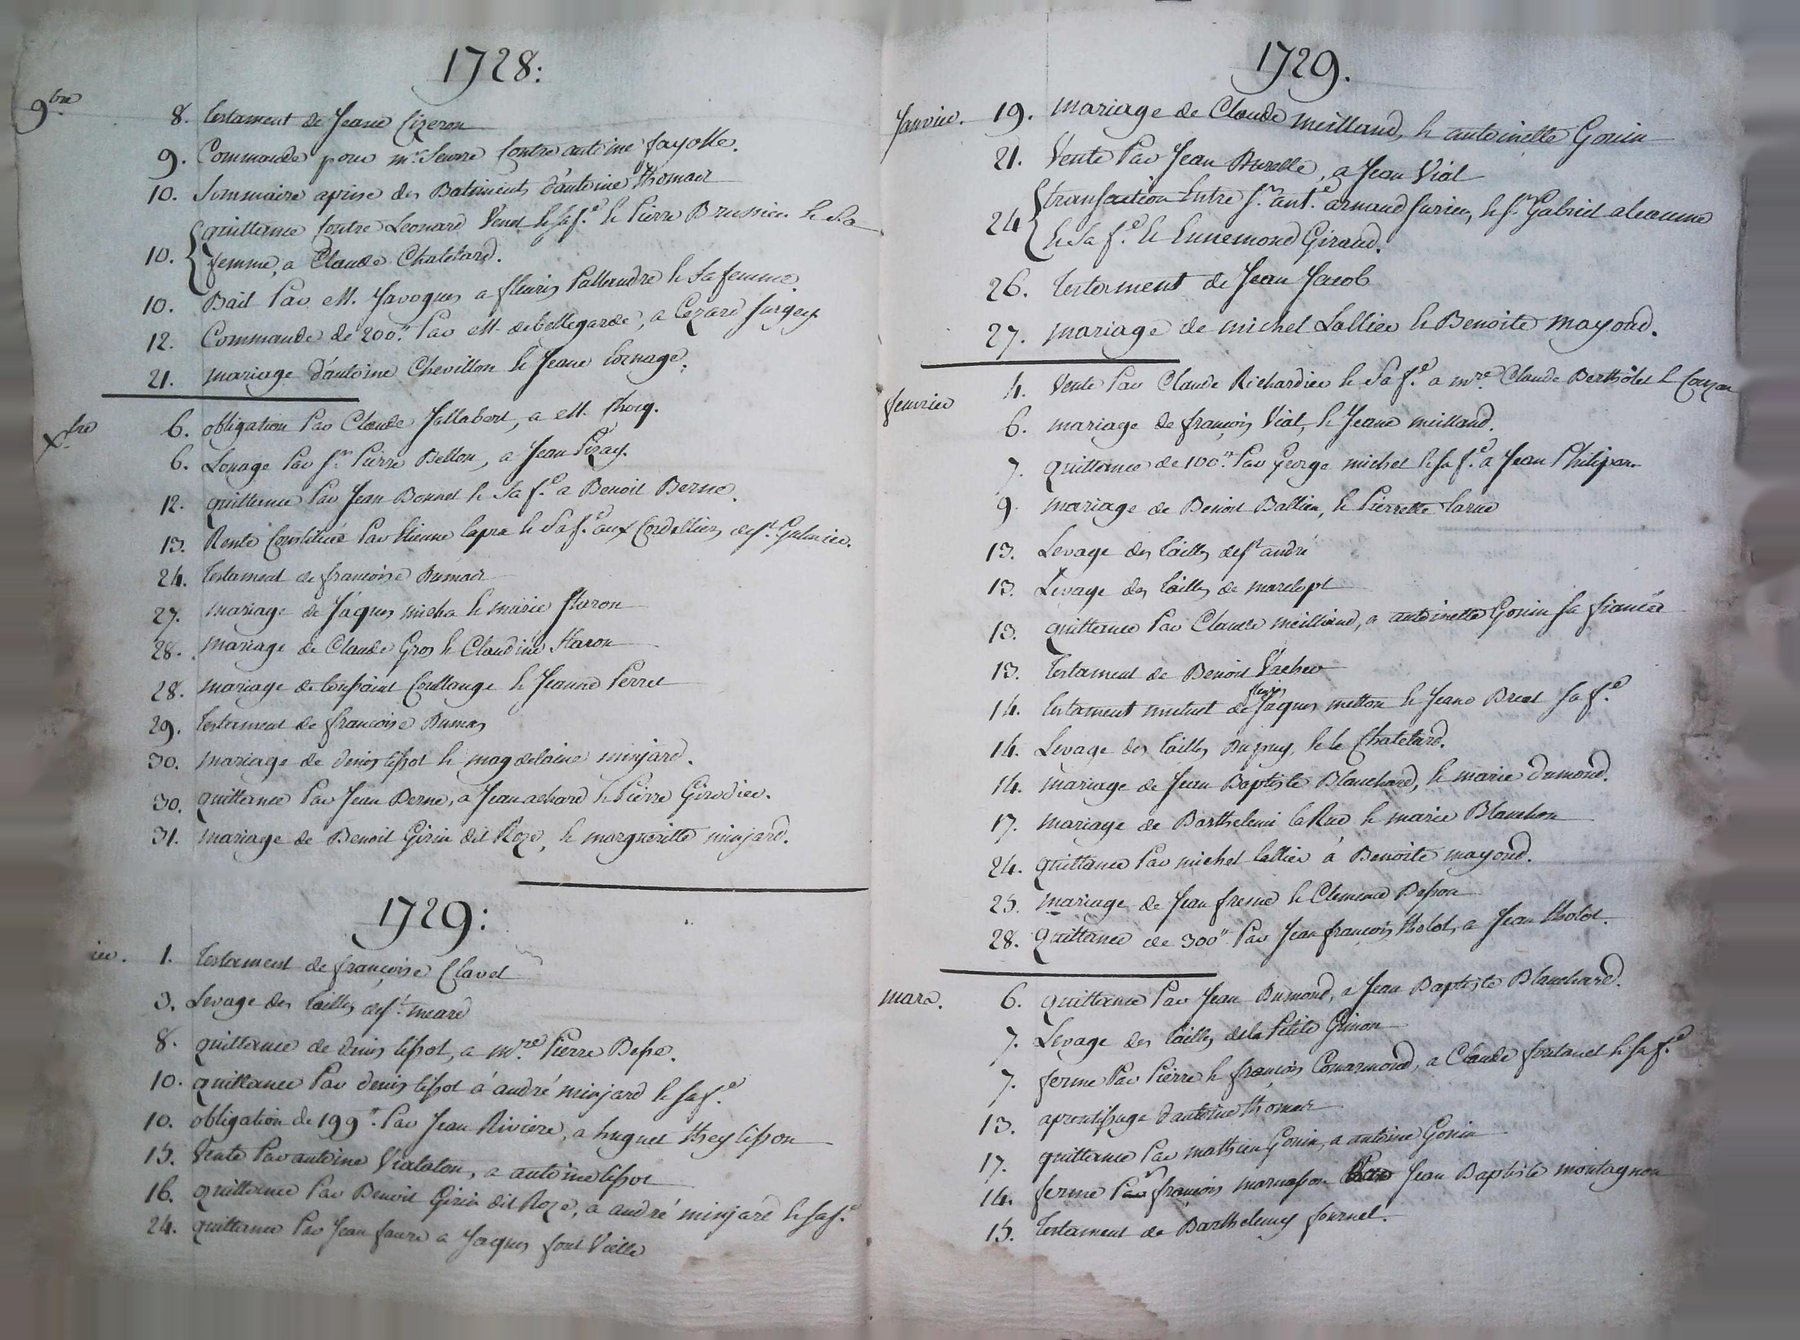 1728:
9bre
8. testament de Jeane Cizeron
9. Commande pour mr. Seurre Contre antoine fayolle.
10. Sommaire aprise des Batiments d'antoine thomas
10. quittance Contre Leonard Venet & sa fe. & Pierre Brussier & sa
femme, a Claude Chatelard.
10. Bail Par M. Javogues a fleuris Pallandre & sa femme.
12. Commande de 200.tt Par M. de bellegarde, a Cezard
21. mariage d'antoine Chevillon & Jeane Cornage.
xbre
6. obligation Par Claude Jallabert, a M.
6. Louage Par sr. Pierre Bellon, a Jean Pizay.
12. quittance Par Jean Bonnet & sa fe. a Benoit Berne.
13. Rente Constituée Par Etienne lapra & sa fe. aux Cordelliers de st. Galmier.
24. testament de francoise Dumas
27. mariage de Jâques micha & marie fleron
28. mariage de Claude Gros & Claudine flaron
28. mariage de toussaint Coullange & Jeanne Perret
29. testament de francoise Dumas
30. mariage de denis tissot & magdelaine minjard.
30. quittance Par Jean Berne, a Jean achard & Pierre Girodier.
31. mariage de Benoit Girin dit Roze, & margueritte minjard.
1729:
ier.
1. testament de françoise Clavel
3. Levage des tailles de st. meard
8. quittance de denis tissot, a mre. Pierre Besse.
10. quittance Par denis tissot á andré minjard & sa fe.
10. obligation de 199tt. Par Jean Riviere, a huguet theylisson
15. Vente Par antoine Vialaton, a antoine tissot
16. quittance Par Benoit Girin dit Roze, a andré minjard & sa fe.
24. quittance Par Jean faure a Jaques font Vielle
1729.
Janvier.
19. mariage de Claude meilland, & antoinette Gonin
21. Vente Par Jean Burelle, a Jean Vial
24 transaction Entre sr. ant.e arnaud furieu, & sr. Gabriel aleaume
& sa fe. & Ennemond Girard.
26. testement de Jean Jacob
27. mariage de michel Lallier & Benoite mayoud.
fevrier
4. Vente Par Claude Richardier & sa fe. a mre. Claude Berthôlet &
6. mariage de françois Vial & Jeane meilland.
7. quittance de 100.tt Par George michel & sa fe. a Jean Philipon
9. mariage de Benoit Ballien, & Pierrette larue
13. Levage des tailles de st andré
13. Levage des tailles de marclopt
13. quittance Par Claude meilland, a antoinette Gonin sa fiancée
13. testament de Benoit Vacher
14. testament mutuel de fleury Jaques metton & Jeane Breat sa fe.
14. Levage des tailles Dupuy, & le Chatelard.
14. mariage de Jean Baptiste Blanchard, & marie dumond.
17. mariage de Barthelemi la Rue & marie Blanchon
24. quittance Par michel lallier á Benoite mayoud.
25. mariage de Jean fresne & Clemence Besson
28. quittance de 300tt Par Jean françois tholot, a Jean tholot.
mars.
6. quittance Par Jean Dumond, a Jean Baptiste Blanchard.
7. Levage des tailles de la Petite Gimon
7. ferme Par Pierre & françois Conarmond, a Claude fontanet & sa fe.
13. aprentissage d'antoine thomas
17. quittance Par mathieu Gonin, a antoine Gonin
14. ferme Par françois marnasson Jean Baptiste montagnon
15. testament de Barthelemy fournel.